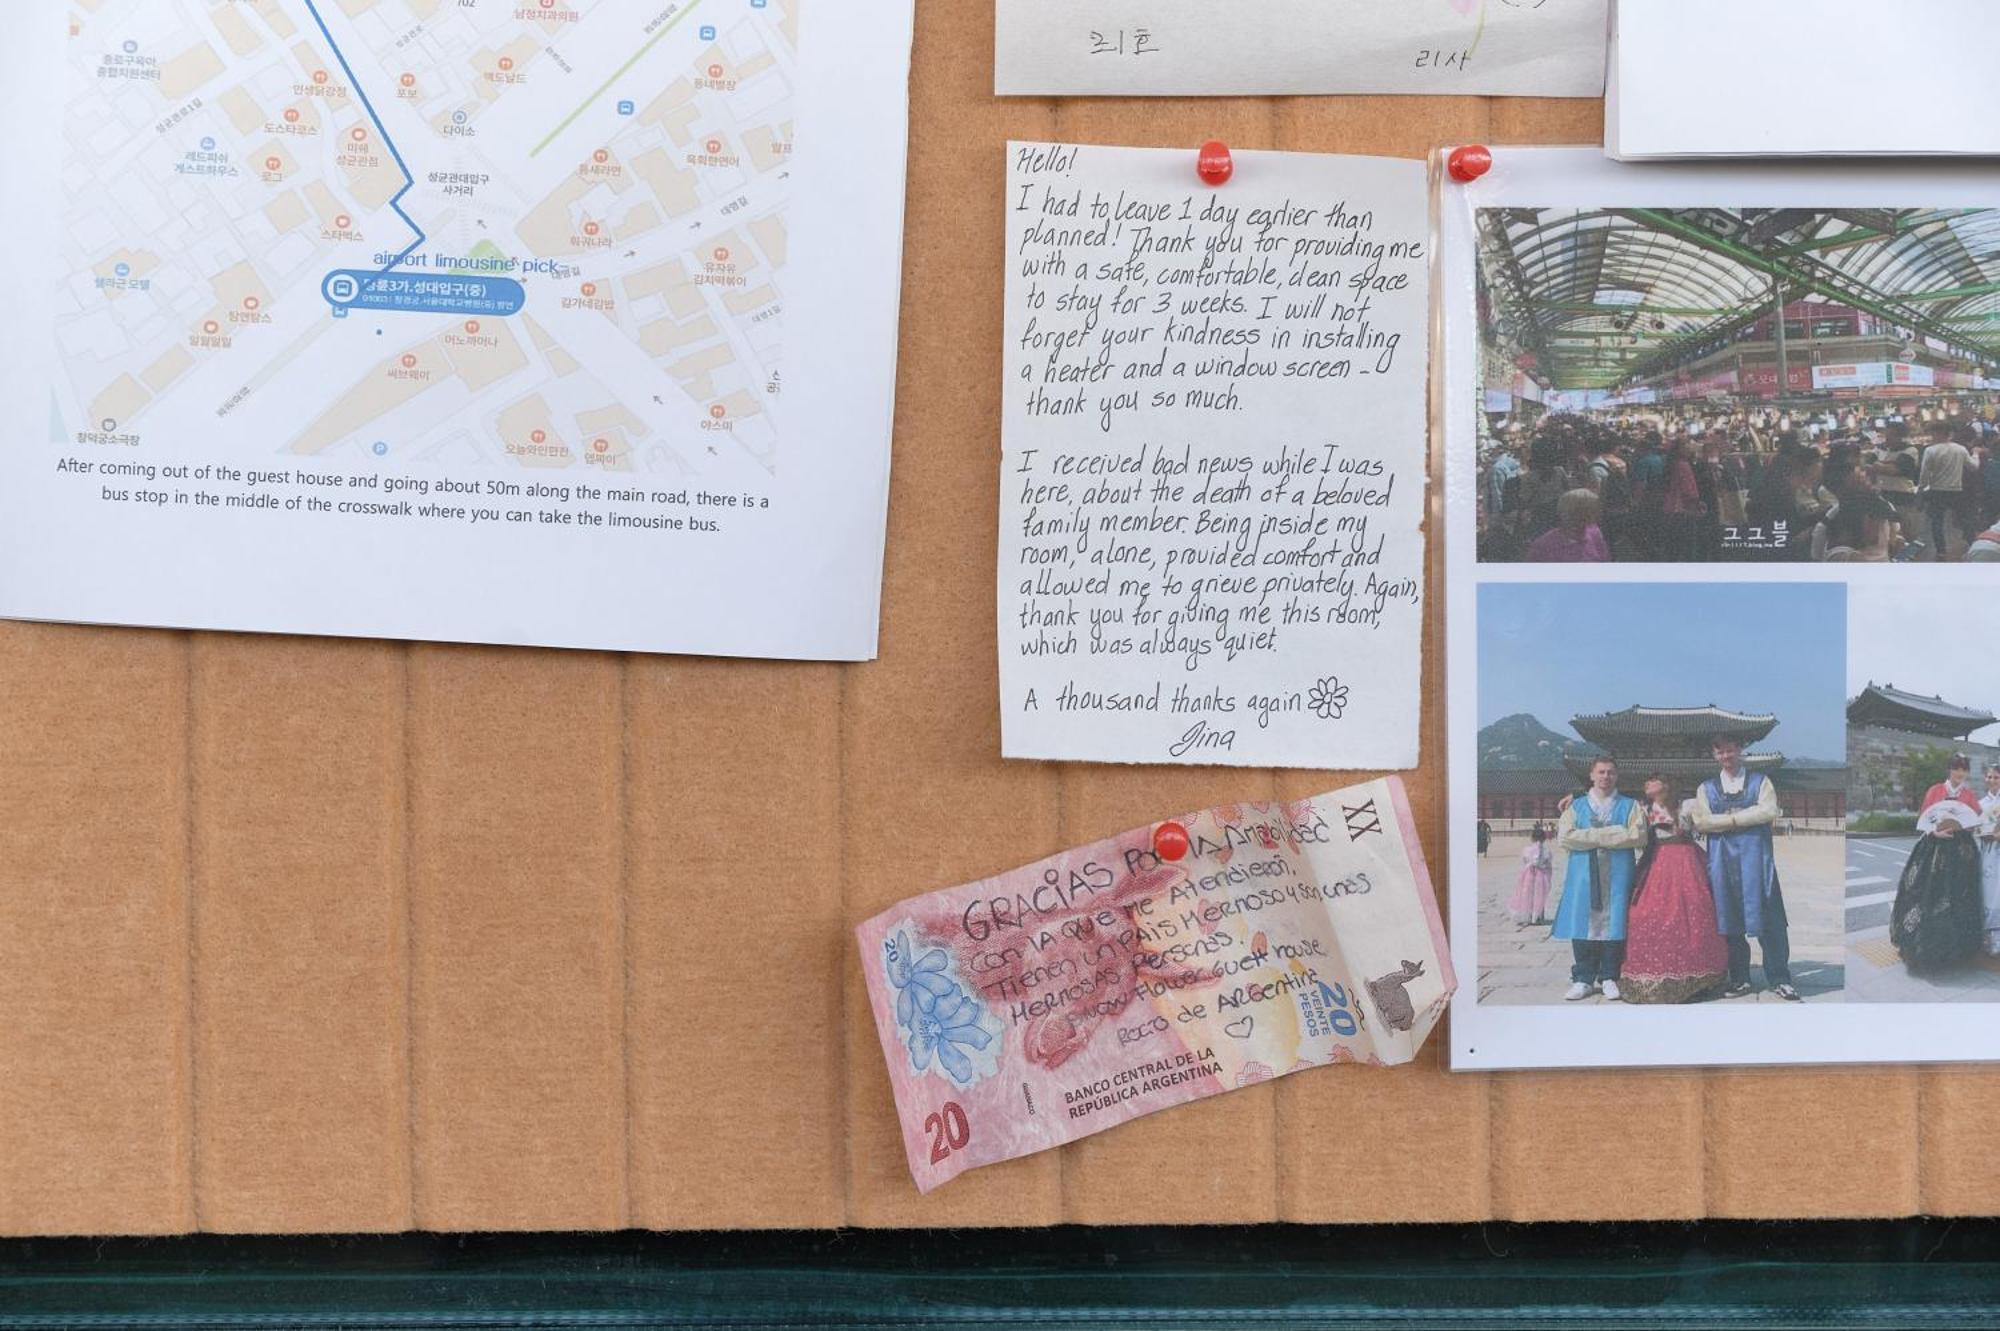 702
남정치과의원
종로구육아
종합지원센터
인생닭강정
포보
맥도날드
동네별장
성균관로1길
도스타코스
다이소
미쉔
성균관점
레드피쉬
게스트하우스
로그
틈새라면
육회한연어
성균관대입구
사거리
대명길
스타벅스
훠궈나라
airport limousine pick-
대명길
유자유
김치떡볶이
명륜3가.성대입구(중)
김가네김밥
탐앤탐스
대명1길
일월일일
어노까이나
써브웨이
창덕궁소극장
오늘와인한잔
야스미
After coming out of the guest house and going about 50m along the main road, there is a
bus stop in the middle of the crosswalk where you can take the limousine bus.
리호
리사
Hello!
I had to leave 1 day earlier than
planned! Thank you for providing me
with a safe, comfortable, clean space
to stay for 3 weeks. I will not
forget your kindness in installing
a heater and a window screen -
thank you so much.
I received bad news while I was
here, about the death of a beloved
family member. Being inside my
room, alone, provided comfort and
allowed me to grieve privately. Again,
thank you for giving me this room,
which was always quiet.
A thousand thanks again
Jina
GRACIAS POR LA AMABILIDAD
CON LA QUE ME ATENDIERON,
TIENEN UN PAIS HERMOSO Y SON UNAS
HERMOSAS PERSONAS.
FLOWER GUEST HOUSE
ROCIO de ARGENTINA
XX
20
20
VEINTE
PESOS
BANCO CENTRAL DE LA
REPÚBLICA ARGENTINA
GUANACO
20
그그블